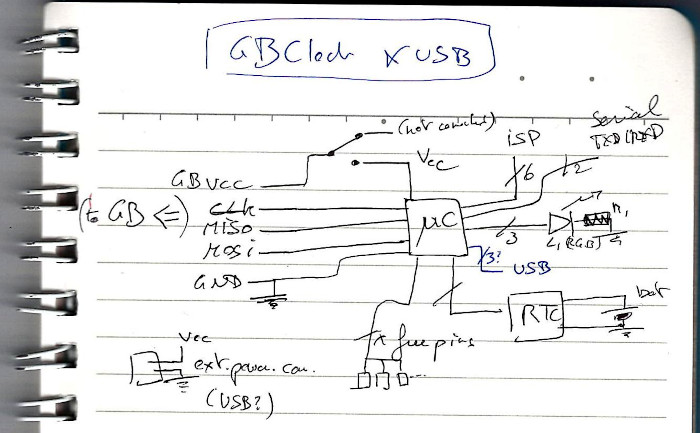 GBClock x USB
(not connected)
iSP
Serial
TXD/RXD
Vcc
6
2
GBVCC
CLK
(to GB <=)
MISO
MOSi
GND
µC
3
L1 (RGB)
R1
3?
USB
RTC
bat
x free pins
Vcc
ext. power. con.
(USB?)